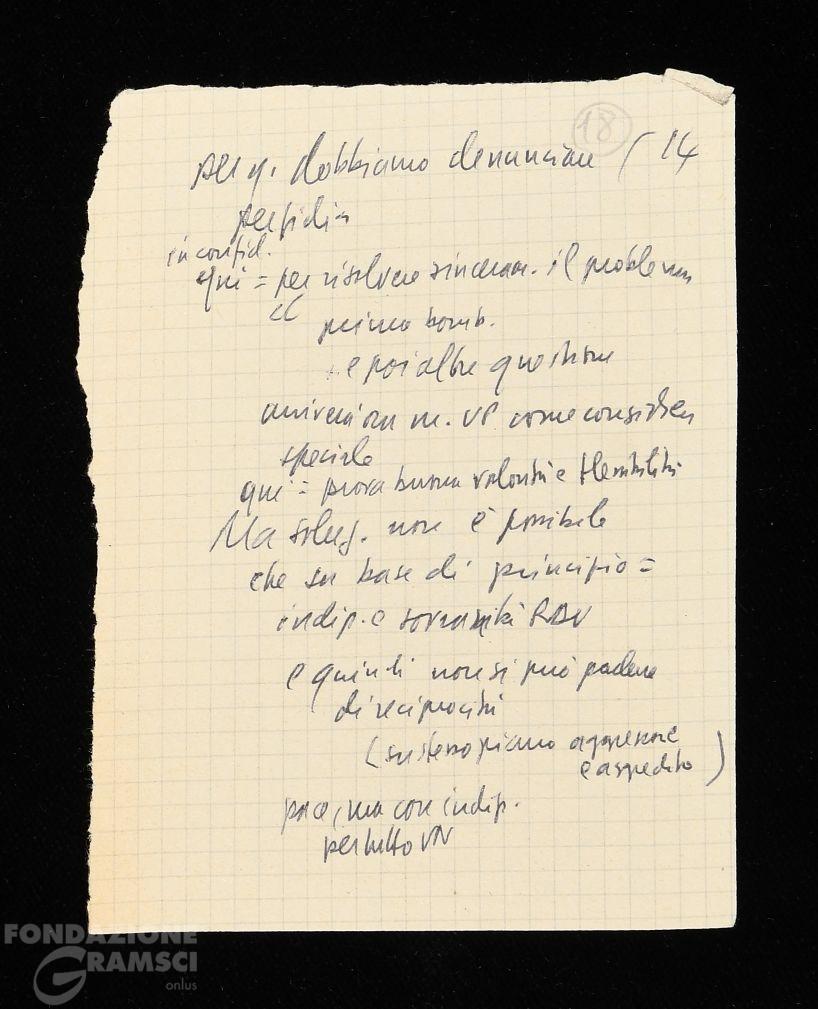 18
per q. dobbiamo denunciare ( 14
perfidia
in confid.
qui = per risolvere sinceram. il problema
prima bomb.
e poi altre questioni
come consideraz
speciale
qui = prova buona volontà e flessibilità
Ma soluz. non è possibile
che su base di principio =
indip. e sovranità RDV
e quindi non si può parlare
di reciprocità
(su stesso piano aggressore
e aggredito)
pace, ma con indip.
per tutto VN
FONDAZIONE
GRAMSCI
onlus